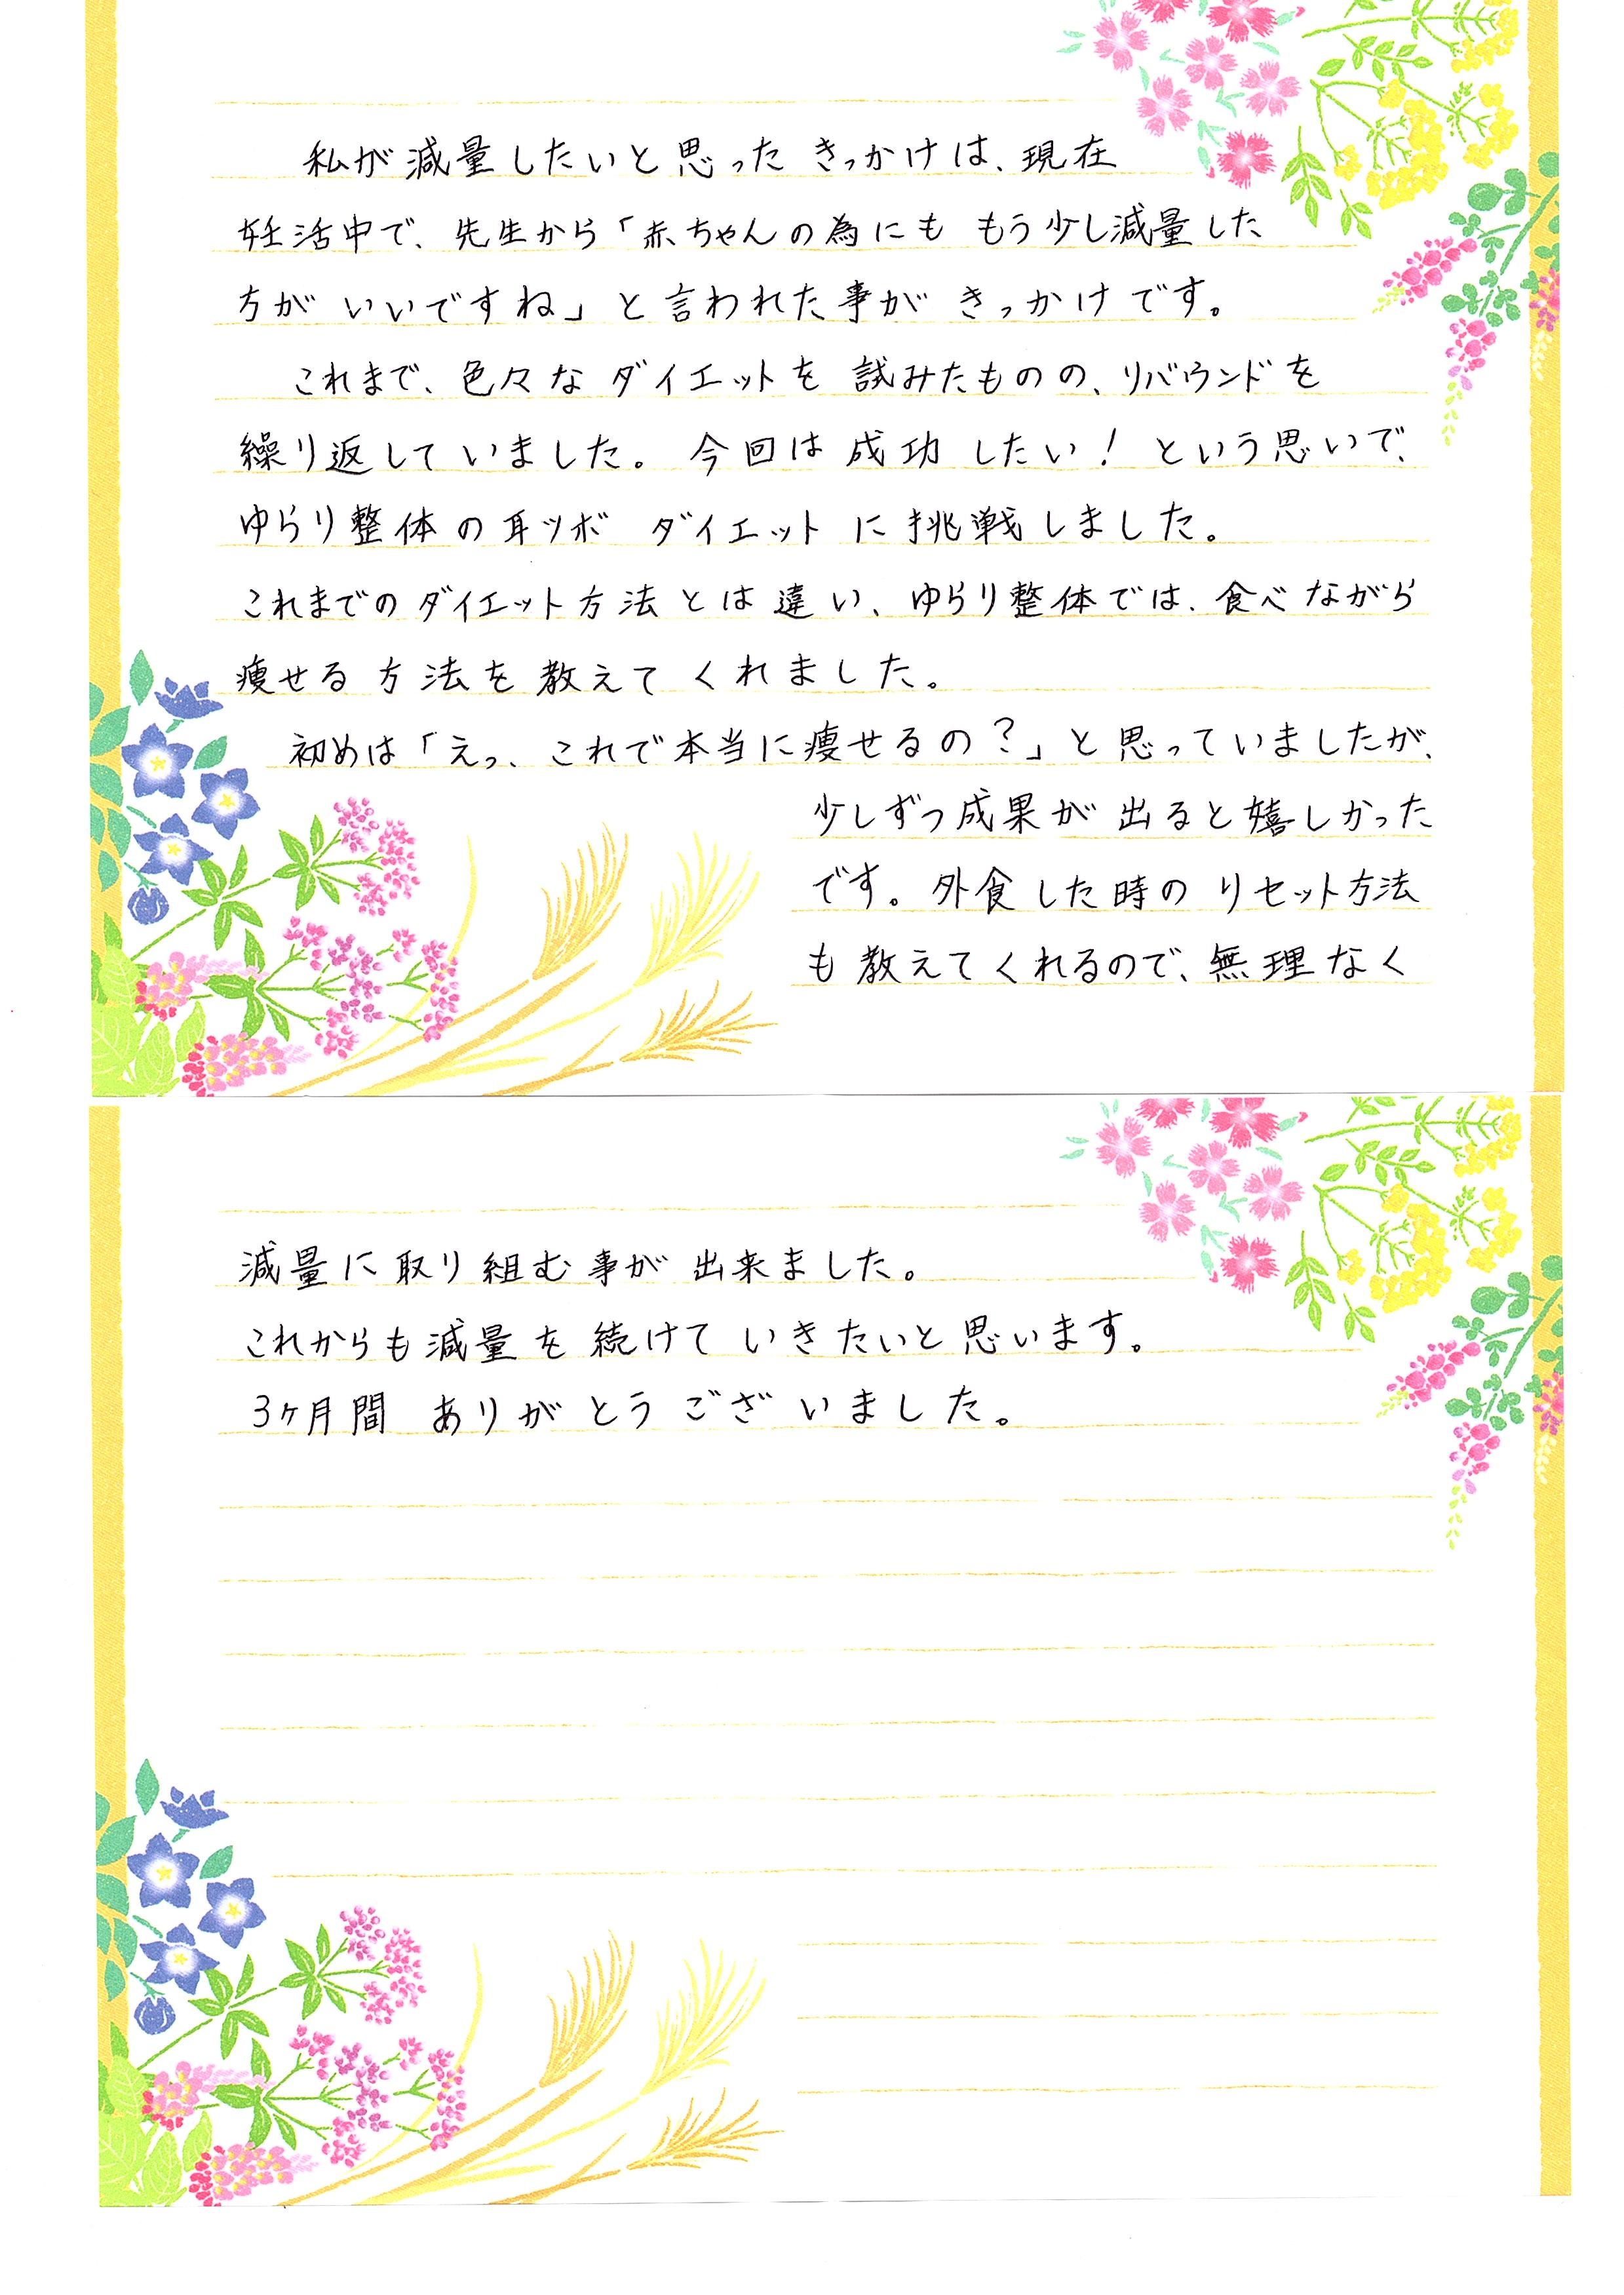 私が減量したいと思ったきっかけは、現在
妊活中で、先生から「赤ちゃんの為にも もう少し減量した
方が いいですね」と言われた事が きっかけです。
これまで、色々な ダイエットを 試みたものの、リバウンドを
繰り返して いました。 今回は 成功 したい! という思いで、
ゆらり整体の耳ツボ ダイエット に挑戦しました。
これまでのダイエット方法とは違い、ゆらり整体では、食べながら
痩せる方法を教えて くれました。
初めは「えっ、これで本当に痩せるの?」と思っていましたが、
少しずつ成果が出ると嬉しかった
です。外食した時の リセット方法
も教えてくれるので、無理なく
減量に取り組む事が 出来ました。
これからも減量を続けて いきたいと思います。
3ヶ月間 ありがとうございました。